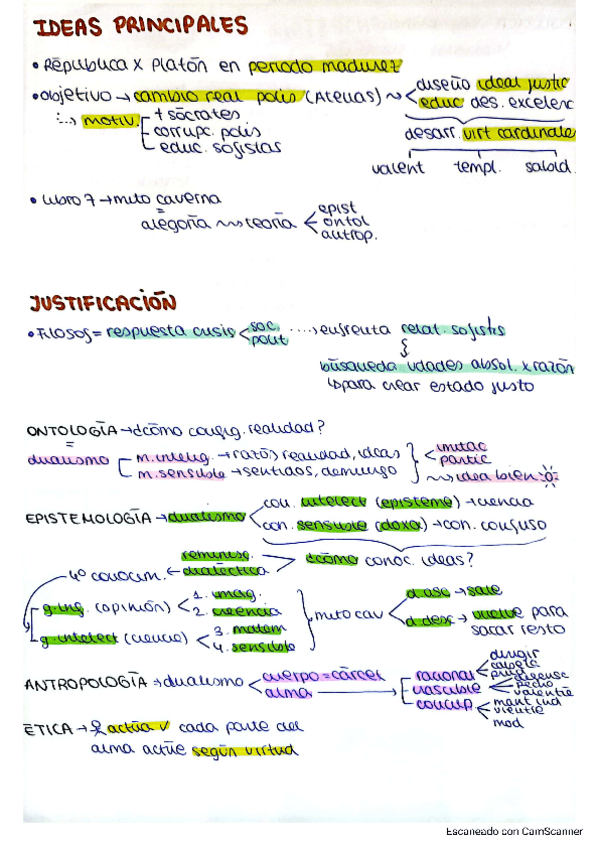 IDEAS PRINCIPALES
• República x Platón en periodo madurez
• objetivo → cambio real polis (Atenas) ~ diseño ideal justic
educ des. excelenc
motiv. + sócrates
corrupc. polis
educ. sofistas
desarr. virt cardinale
valent templ. sabid.
• Libro 7 → mito caverna
=
alegoría ~~> teoría
epist
ontol
autrop.
JUSTIFICACIÓN
• Filosof = respuesta crisis soc. ····> enfrenta relat. sofists
polit
búsqueda vdades absol. x razón
↳ para crear estado justo
ONTOLOGÍA → ¿cómo config. realidad?
=
dualismo
m. intelig. → razón, realidad, ideas
m. sensible → sentidos, demiurgo
imitac
partic
~~> idea bien
EPISTEMOLOGÍA → dualismo
con. intelect (episteme) → ciencia
con. sensible (doxa) → con. confuso
reminisc.
dialéctica
¿cómo conoc. ideas?
4º conocim.
g. ing. (opinión) 1. imag.
2. creencia
g. intelect (ciencia) 3. matem
4. sensible
mito cav
d asc → sale
d desc → vuelve para
sacar resto
ANTROPOLOGÍA → dualismo
cuerpo = cárcel
alma
racional
irascible
concup.
dirigir
cabeza
prud
defensa
pecho
valentía
mant ind
vientre
mod
ÉTICA → actúa v cada parte del
alma actúe según virtud
Escaneado con CamScanner